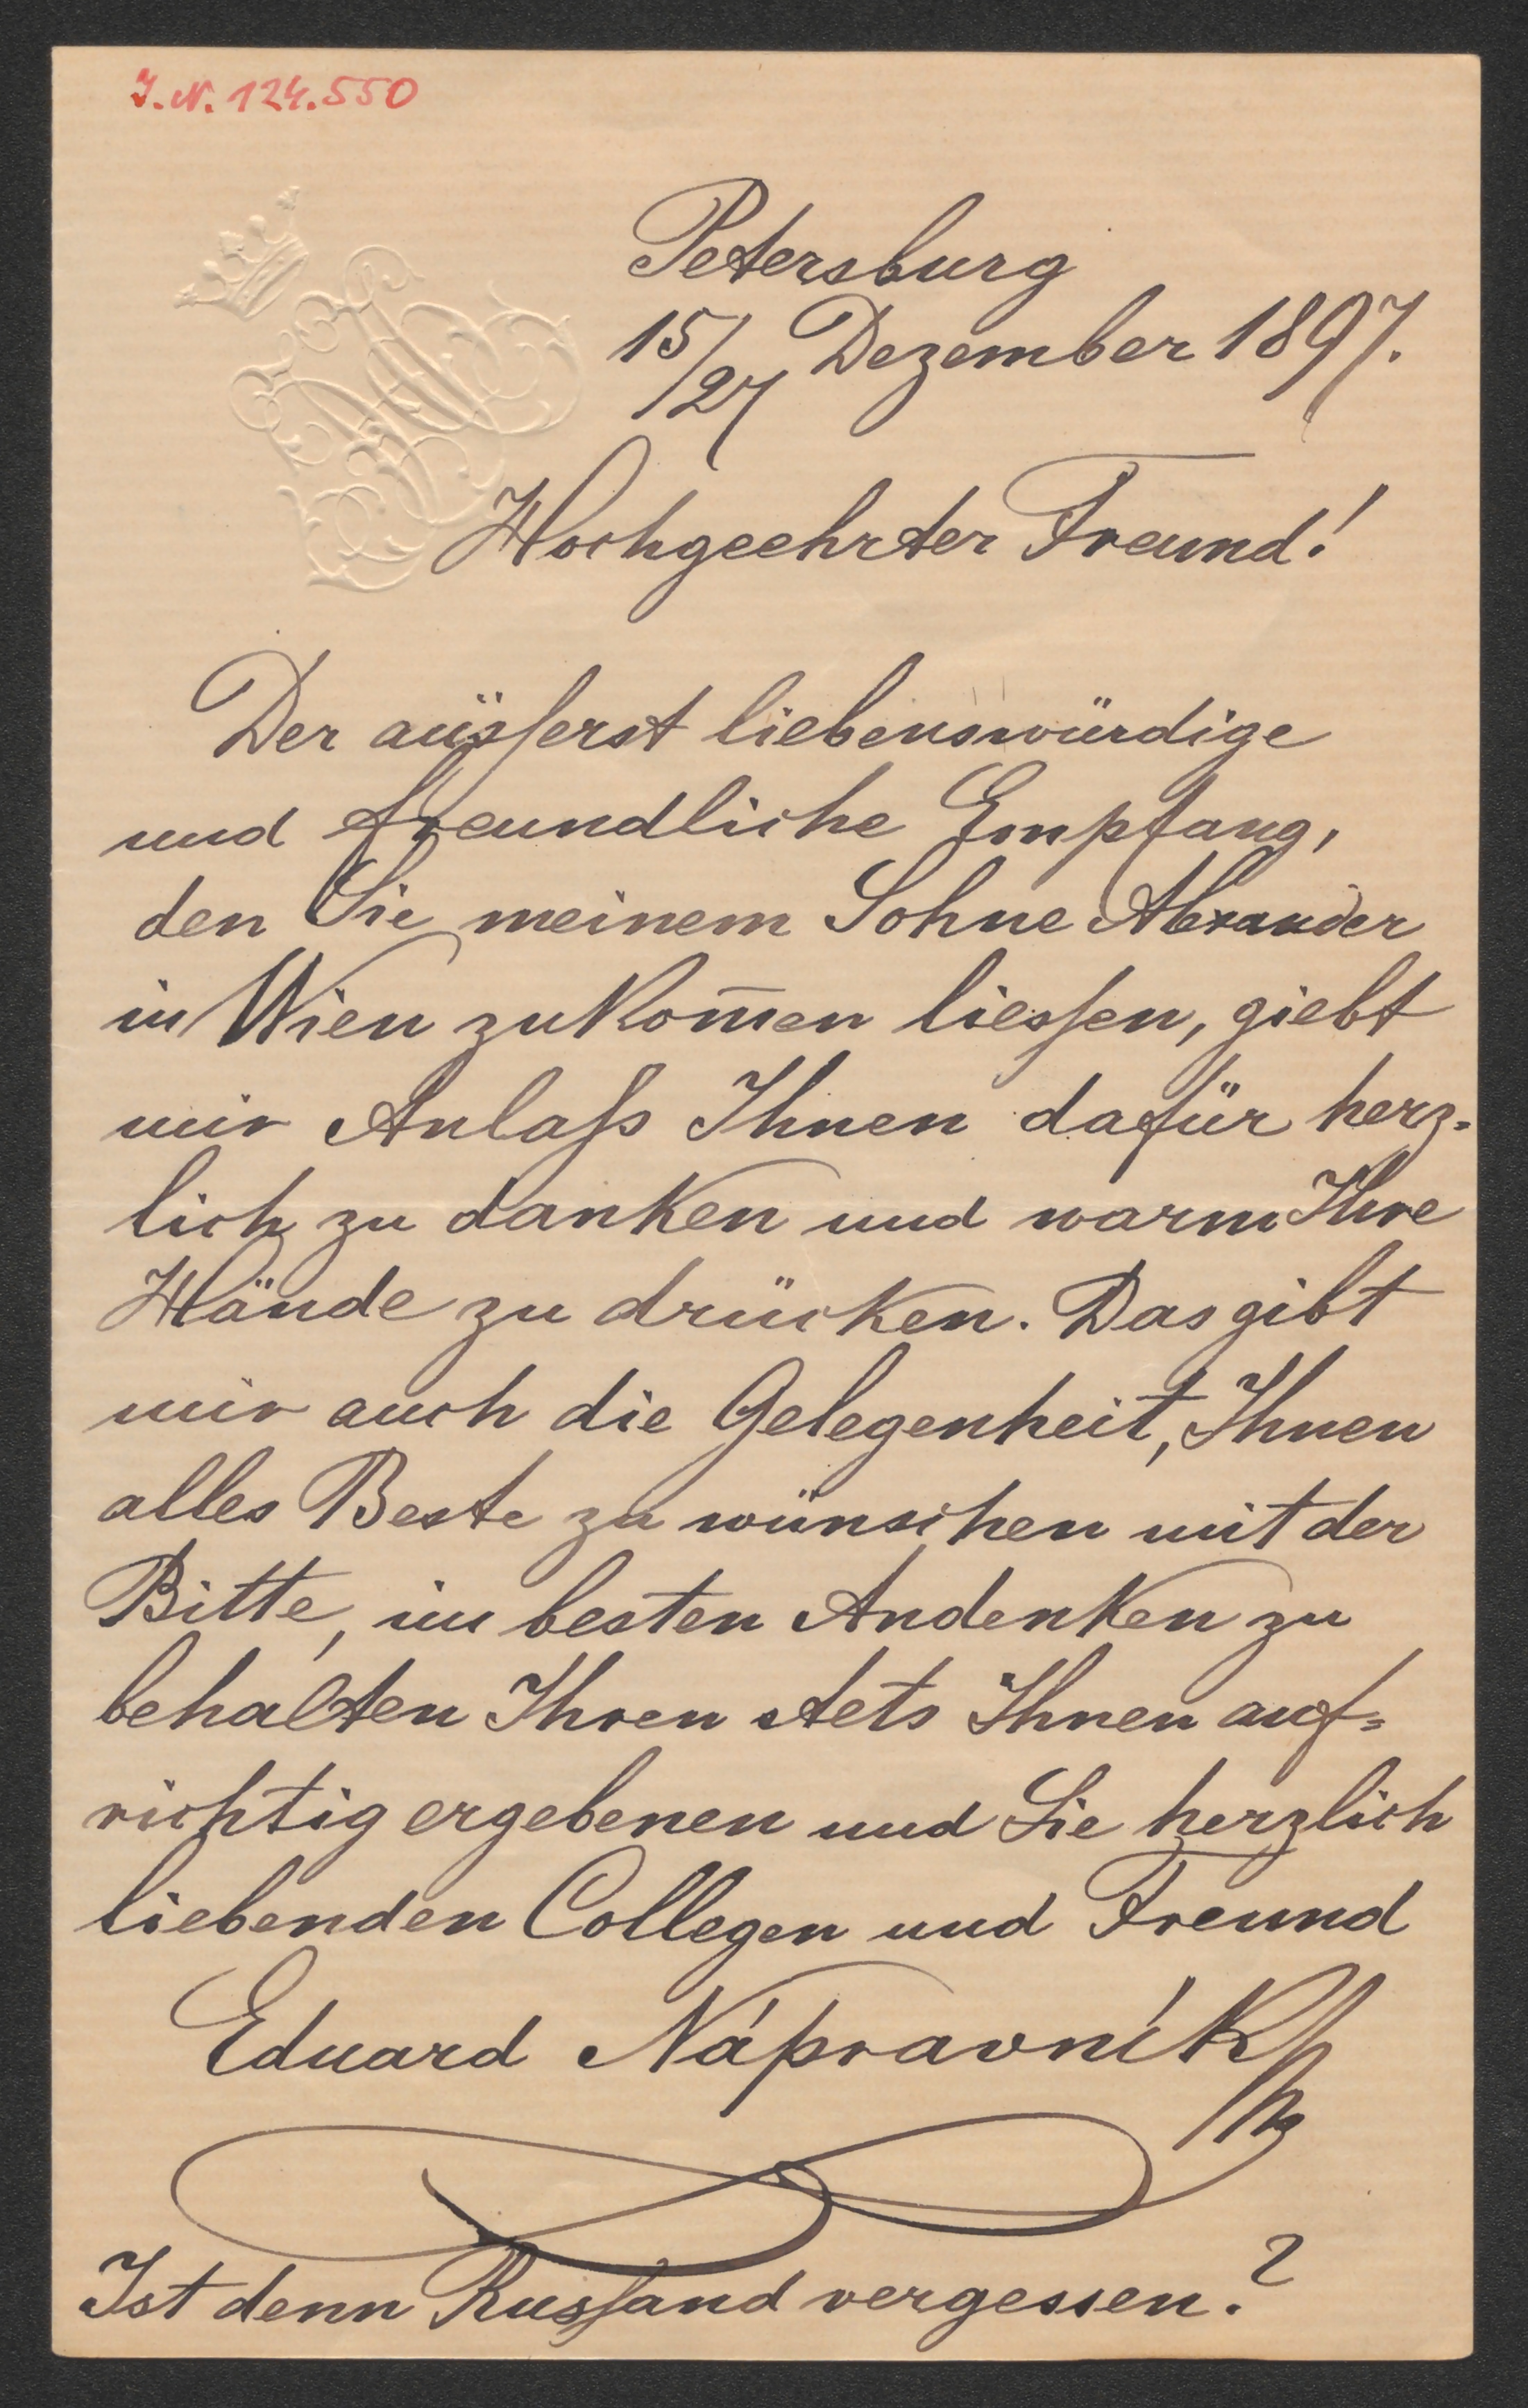 I.N. 124.550
Petersburg
15/27 Dezember 1897.
Hochgeehrter Freund!
Der aüsserst liebenswürdige
und freundliche Empfang,
den Sie meinem Sohne Alexander
in Wien zukom̄en liessen, giebt
mir Anlass Ihnen dafür herz-
lich zu danken und warm Ihre
Hände zu drücken. Das gibt
mir auch die Gelegenheit, Ihnen
alles Beste zu wünschen mit der
Bitte, im besten Andenken zu
behalten Ihren stets Ihnen auf-
richtig ergebenen und Sie herzlich
liebenden Collegen und Freund
Eduard Nápravník
Ist denn Russland vergessen?